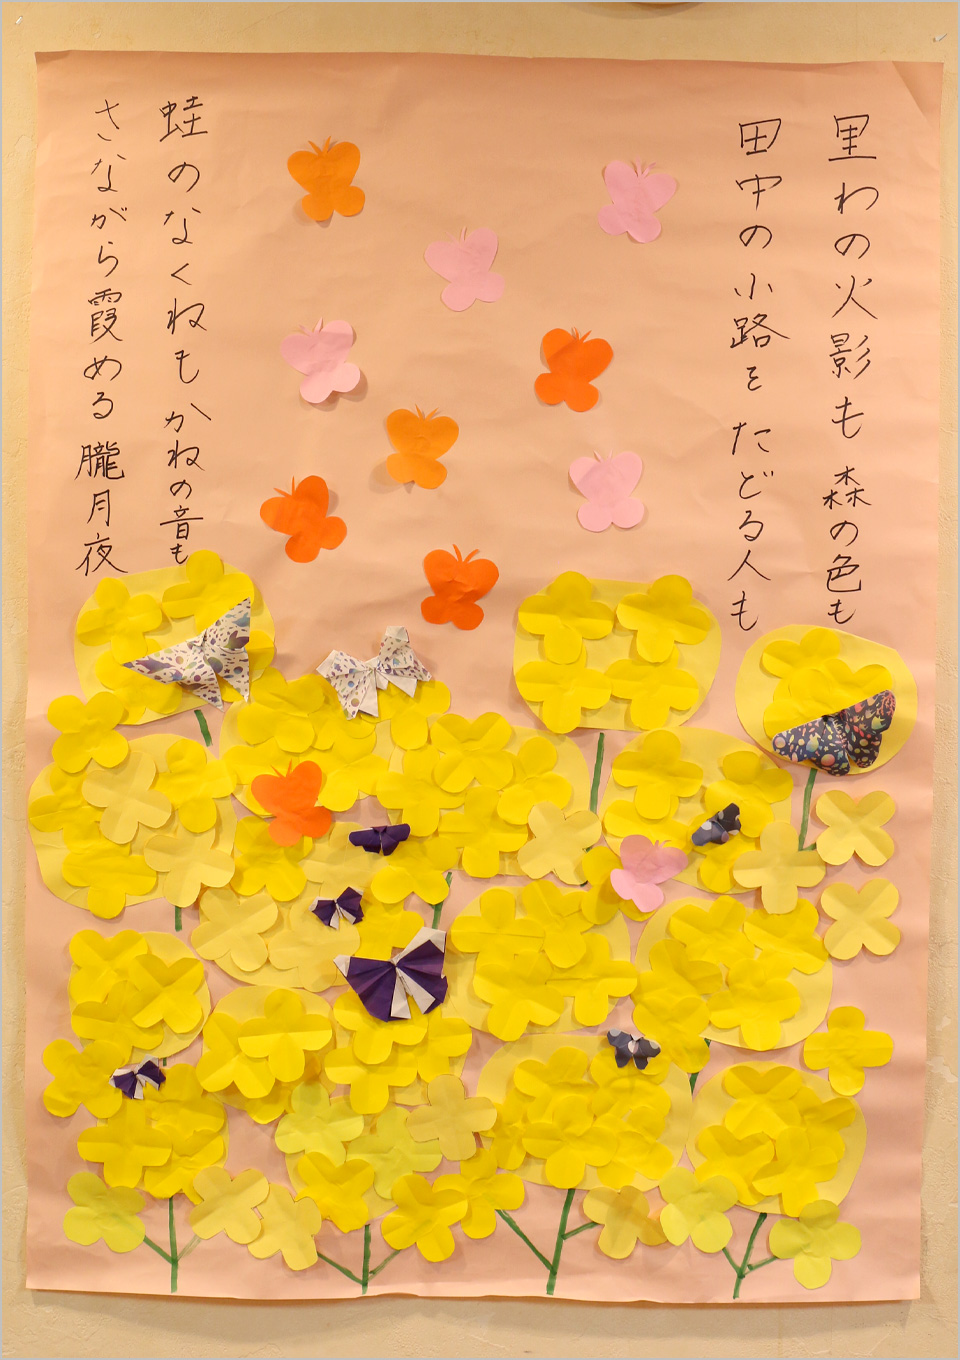 里わの火影も 森の色も
田中の小路を たどる人も
蛙のなくねも かねの音も
さながら霞める 朧月夜